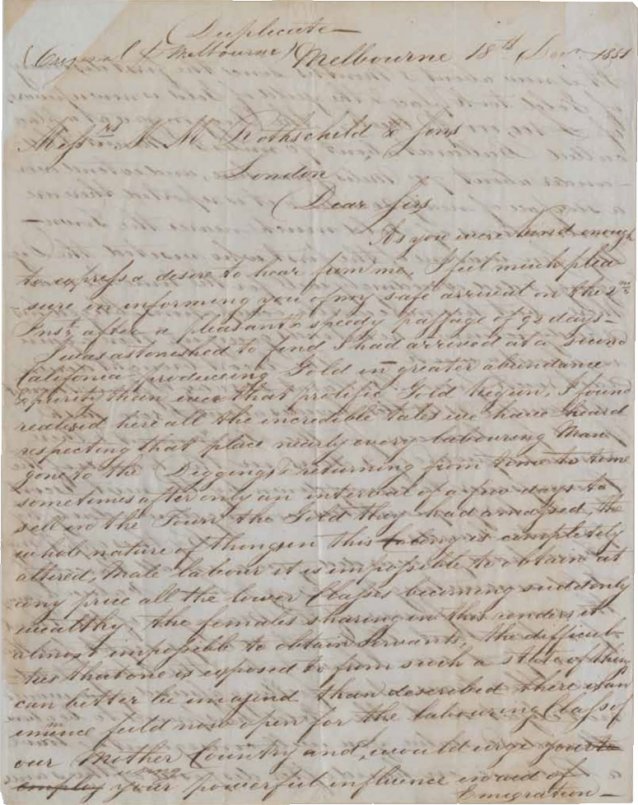 Duplicate
(Original p Melbourne) Melbourne 18th Decr 1851
Messrs N M Rothschild & Sons
London
Dear Sirs
As you were kind enough
to express a desire to hear from me, I feel much plea
sure in informing you of my safe arrival on the 2nd
Inst, after a pleasant & speedy passage of 92 days –
I was astonished to find I had arrived at a second
California, producing Gold in greater abundance
& purity than even that prolific Gold Region, I found
realised here all the incredible tales we have heard
respecting that place nearly every labouring Man
gone to the Diggings & returning from time to time
sometimes after only an interval of a few days to
sell in the Town the Gold they had amassed, the
whole nature of things in this Colony is completely
altered, Male labour it is impossible to obtain at
any price all the lower Classes becoming suddenly
wealthy the females sharing in this renders it
almost impossible to obtain Servants, the difficul-
ties that one is exposed to from such a state of things
can better be imagind than described there is an
immence feild now open for the labouring Class of
our Mother Country and, would urge you to
employ your powerful influence in aid of
Emigration –